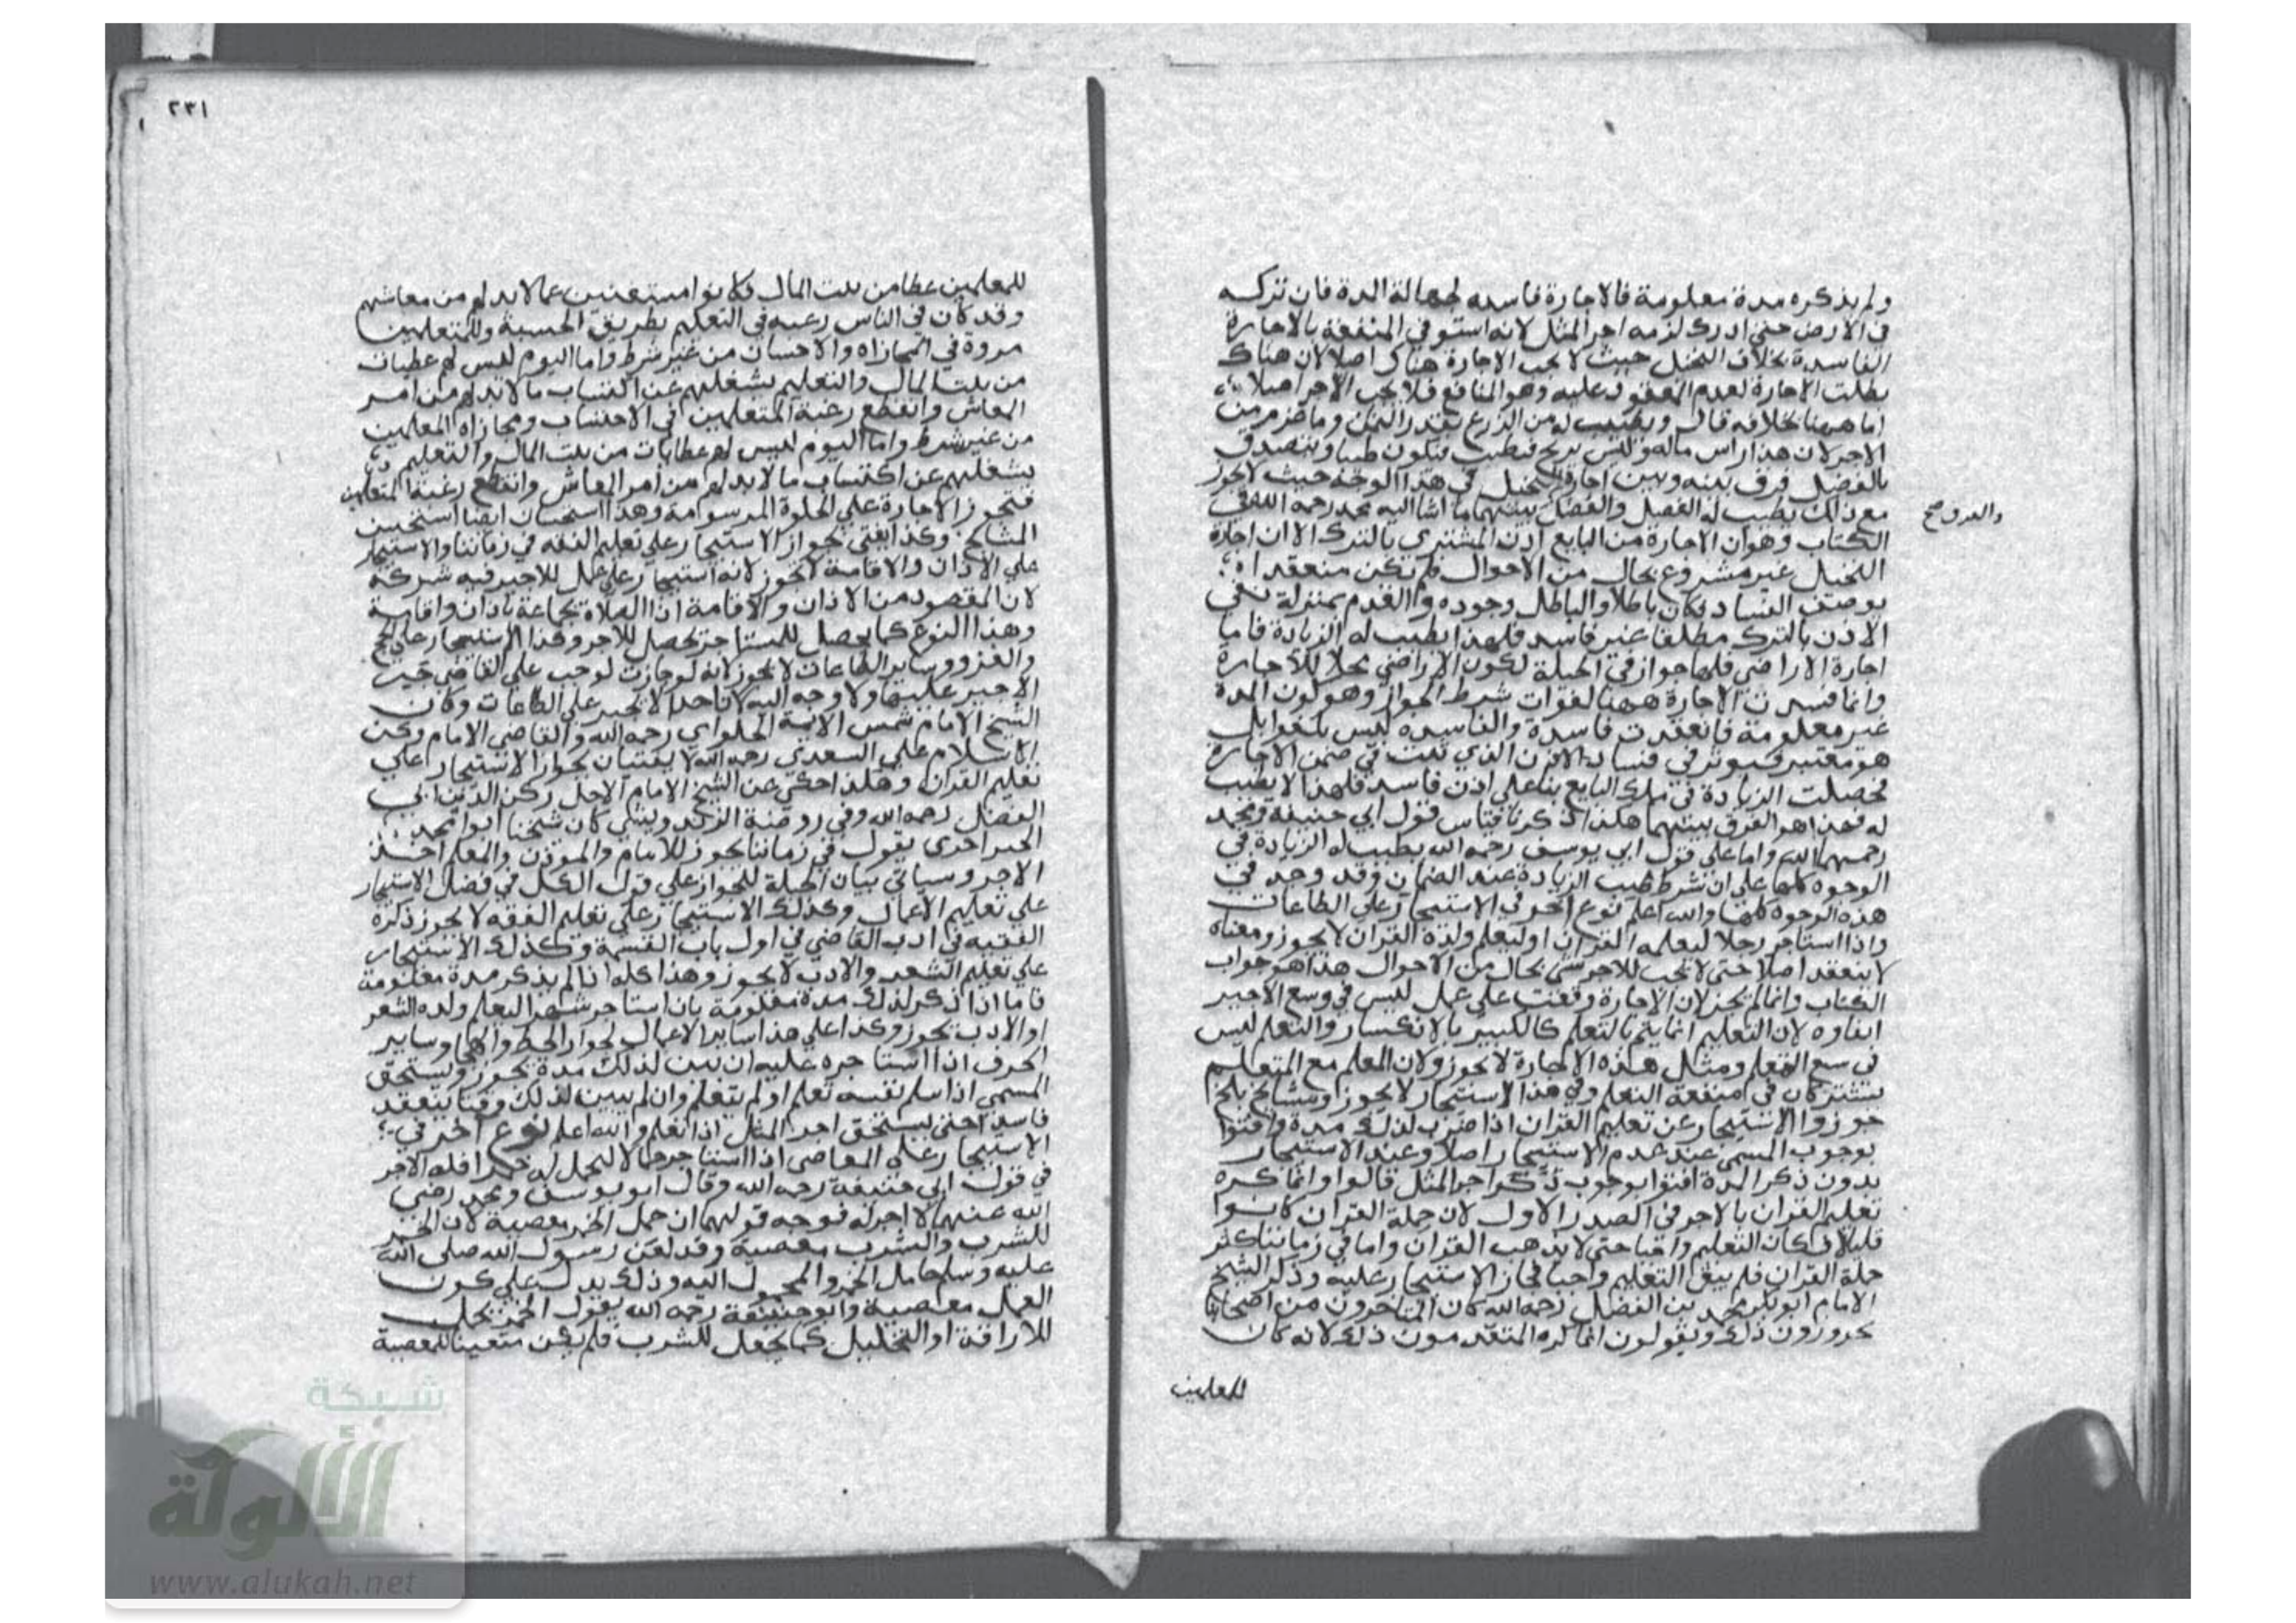 ولم يذكره مدة معلومة فالاجارة فاسده لجهالة المدة فان تركه
في الارض حتى ادرك لزمه اجر المثل لانه استوفى المنفعة بالاجارة
الفاسدة بخلاف النخيل حيث لا يجب الاجارة هناك اصلا لان هناك
بطلت الاجارة لعدم المعقود عليه وهو المنافع فلا يجب الاجر اصلا
اما ههنا بخلافه قال ويطيب له من الزرع بقدر الثمن وما غرم من
الاجر لان هذا راس ماله وليس بربح فيطيب فيكون طيبا ويتصدق
بالفضل فرق بينه وبين اجارة النخيل في هذا الوجه حيث لا يجوز
مع ذلك يطيب له الفضل والفضل بينهما ما اشار اليه محمد رحمه الله في
والفرق صح
الكتاب وهو ان الاجارة من البايع اذن المشتري بالترك الا ان اجارة
النخيل غير مشروع بحال من الاحوال فلم تكن منعقداه
بوصف الفساد فكان باطلا والباطل وجوده والعدم بمنزلة فبقي
الاذن بالترك مطلقا غير فاسد فلهذا يطيب له الزيادة فاما
اجارة الاراضي فلها جواز في الجملة لكون الاراضي محلا للاجارة
وانما فسدت الاجارة ههنا لفوات شرط الجواز وهو كون المدة
غير معلومة فانعقدت فاسدة والفاسده ليس بلغو بل
هو معتبر فيوثر في فساد الاذن الذي ثبت في ضمن الاجارة
فحصلت الزيادة في ملك البايع بناء على اذن فاسد فلهذا لا يطيب
له فهذا هو الفرق بينهما هكذا ذكرنا قياس قول ابي حنيفة ومحمد
رحمهما الله واما على قول ابي يوسف رحمه الله يطيب له الزيادة في
الوجوه كلها على ان شرط طيب الزيادة عنده الضمان وقد وجد في
هذه الوجوه كلها والله اعلم نوع اخر في الاستيجار على الطاعات
واذا استاجر رجلا ليعلمه القران او ليعلم ولده القران لا يجوز ومعناه
لا ينعقد اصلا حتى لا يجب للاجر شي بحال من الاحوال هذا هو جواب
الكتاب وانما لم يجز لان الاجارة وقعت على عمل ليس في وسع الاجير
ايفاوه لان التعليم انما يتم بالتعلم كالكسر بالانكسار والتعلم ليس
في وسع المعلم ومثل هذه الاجارة لا يجوز ولان المعلم مع المتعلم
يشتركان في منفعة التعلم وفي هذا الاستيجار لا يجوز ومشايخ بلخ
جوزوا الاستيجار عن تعليم القران اذا ضرب لذلك مدة وافتوا
بوجوب المسمى عند عدم الاستيجار اصلا وعند الاستيجار
بدون ذكر المدة افتوا بوجوب اجر المثل قالوا وانما كره
تعليم القران بالاجر في الصدر الاول لان حملة القران كانوا
قليلا فكان التعليم واجبا حتى لا يذهب القران واما في زماننا كثر
حملة القران فلم يبق التعليم واجبا فجاز الاستيجار عليه وذكر الشيخ
الامام ابو بكر محمد بن الفضل رحمه الله كان المتاخرون من اصحابنا
يجوزون ذلك ويقولون انما كره المتقدمون ذلك لانه كان
للمعلمين
٢٣١
للمعلمين عطا من بيت المال فكانوا مستغنين عما لابد لهم من معاشهم
وقد كان في الناس رغبه في التعليم بطريق الحسبة وللمتعلمين
مروة في المجازاه والاحسان من غير شرط واما اليوم ليس لهم عطيات
من بيت المال والتعليم يشغلهم عن اكتساب ما لابد لهم من امر
المعاش وانقطع رغبة المتعلمين في الاحتساب ومجازاه المعلمين
من غير شرط واما اليوم ليس لهم عطايات من بيت المال والتعليم
يشغلهم عن اكتساب ما لابد لهم من امر المعاش وانقطع رغبة المتعلمين
فتجوز الاجارة على الحلوة المرسوامة وهذا استحسان ايضا استحسن
المشايخ وكذا يفتى بجواز الاستيجار على تعليم الفقه في زماننا والاستيجار
على الاذان والاقامة لا يجوز لانه استيجار على عمل للاجير فيه شركة
لان المقصود من الاذان والاقامة اذا الصلاة بجماعة باذان واقامة
وهذا النوع كما يحصل للمستاجر يحصل للاجر وكذا الاستيجار على الحج
والغزو وساير الطاعات لا يجوز لانه لو جازت لوجب على القاضي جبر
الاجير عليها ولا وجه اليه لان احدا لا يجبر على الطاعات وكان
الشيخ الامام شمس الايمة الحلواي رحمه الله والقاضي الامام ركن
الاسلام علي السعدي رحمه الله لا يفتيان بجواز الاستيجار على
تعليم القران وهكذا حكي عن الشيخ الامام الاجل ركن الدين ابي
الفضل رحمه الله وفي روضة الزندويستي كان شيخنا ابو محمد
الخيراخري يقول في زماننا يجوز للامام والموذن والمعلم اخذ
الاجر وسياتي بيان الحيلة للجواز على قول الكل في فصل الاستيجار
على تعليم الاعمال وكذلك الاستيجار على تعليم الفقه لا يجوز ذكره
الفقيه في ادب القاضي في اول باب القسمة وكذلك الاستيجار
على تعليم الشعر والادب لا يجوز وهذا كله اذا لم يذكر مدة معلومة
فاما اذا ذكر لذلك مدة معلومة بان استاجر شهرا ليعلم ولده الشعر
او الادب يجوز وكذا على هذا ساير الاعمال لجواز الخط والهجا وساير
الحرف اذا استاجره عليه ان بين لذلك مدة يجوز ويستحق
المسمى اذا سلم نفسه تعلم او لم يتعلم وان لم يبين لذلك وقتا ينعقد
فاسدا حتى يستحق اجر المثل اذا تعلم والله اعلم نوع اخر في
الاستيجار على المعاصي اذا استاجر حمالا ليحمل له خمرا فله الاجر
في قول ابي حنيفة رحمه الله وقال ابو يوسف ومحمد رضي
الله عنهما لا اجر له فوجه قولهما ان حمل الخمر معصية لان الخمر
للشرب والشرب معصية وقد لعن رسول الله صلى الله
عليه وسلم حامل الخمر والمحمول اليه وذلك يدل على كون
العمل معصية وابو حنيفة رحمه الله يقول الخمر يحمل
للاراقة او التخليل كما يحمل للشرب فلم يكن متعينا للمعصية
شبكة
الألوكة
www.alukah.net